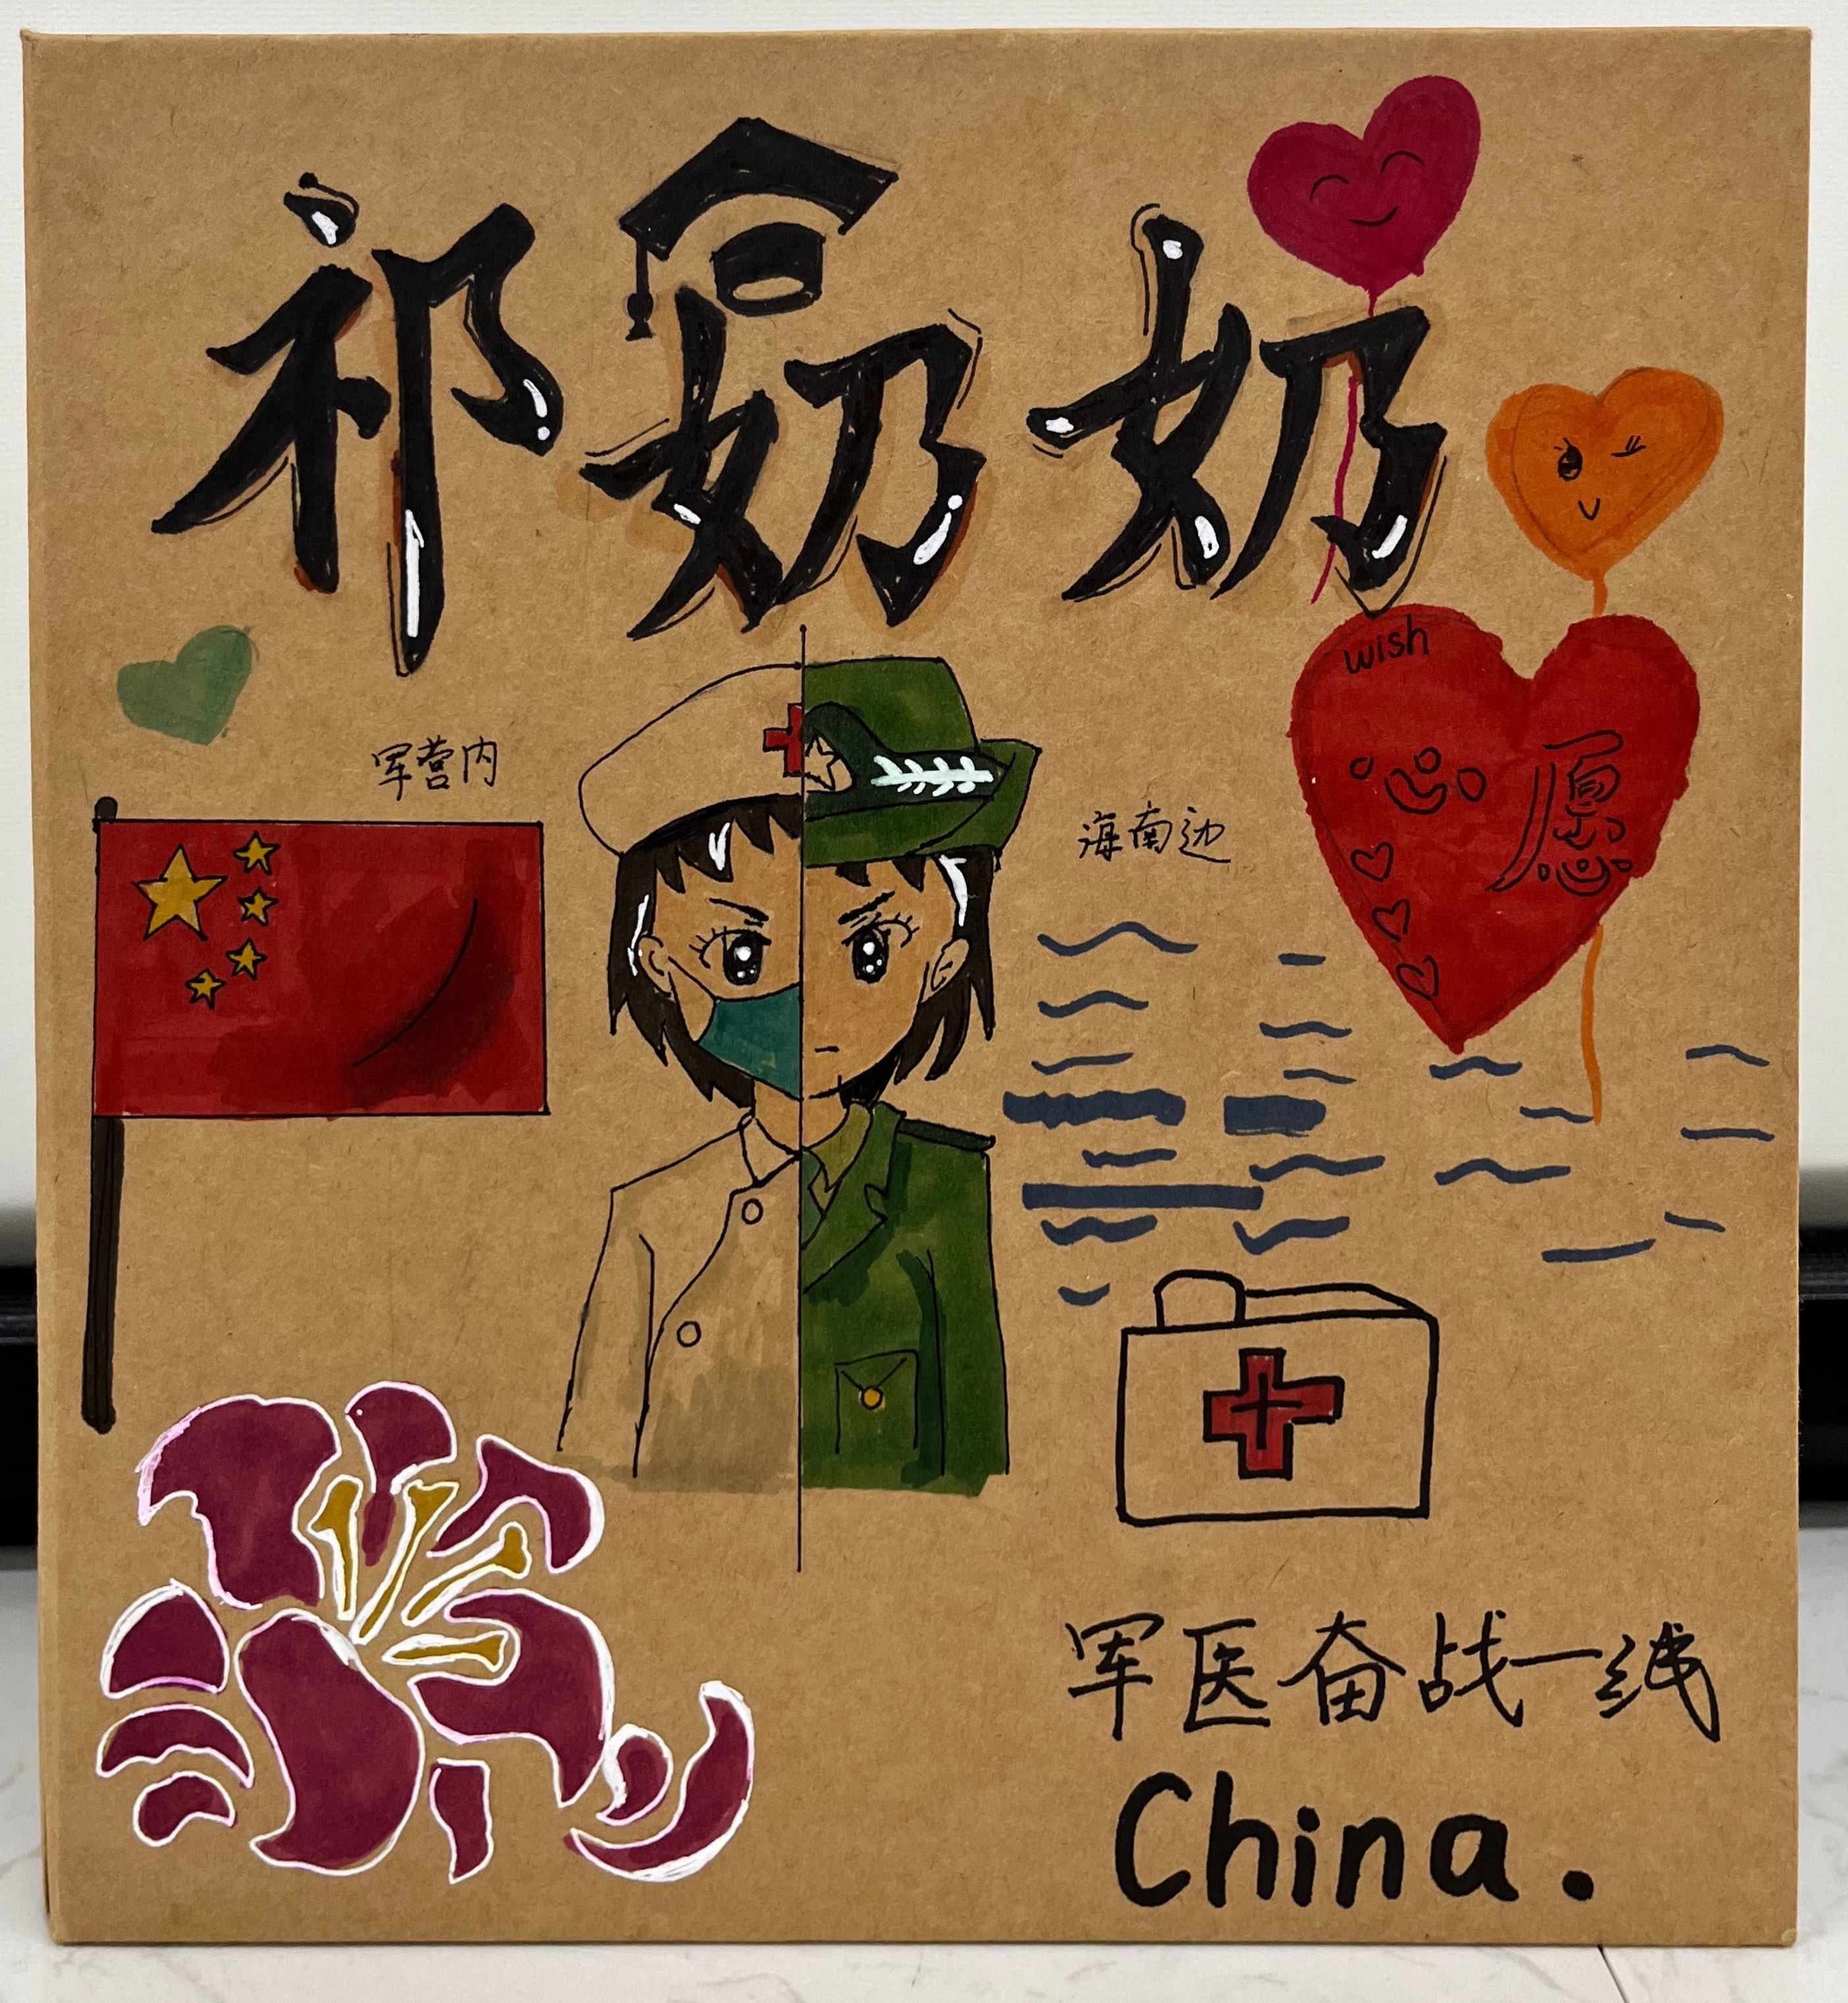 祁奶奶
wish
心愿
军营内
海南边
军医奋战一线
China.